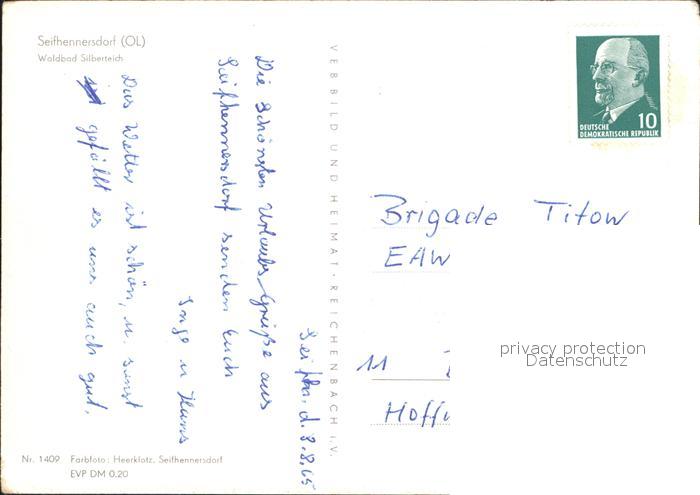 Seifhennersdorf (OL)
Waldbad Silberteich
Seifhn. d. 8.8.65
Die schönsten Urlaubsgrüße aus
Seifhennersdorf senden Euch
Inge u Hans
Das Wetter ist schön, u. sonst
gefällt es uns auch gut.
VEB BILD UND HEIMAT · REICHENBACH i. V.
10
DEUTSCHE
DEMOKRATISCHE REPUBLIK
Brigade Titow
EAW
11
Hoff
privacy protection
Datenschutz
Nr. 1409 Farbfoto: Heerklotz, Seifhennersdorf
EVP DM 0.20